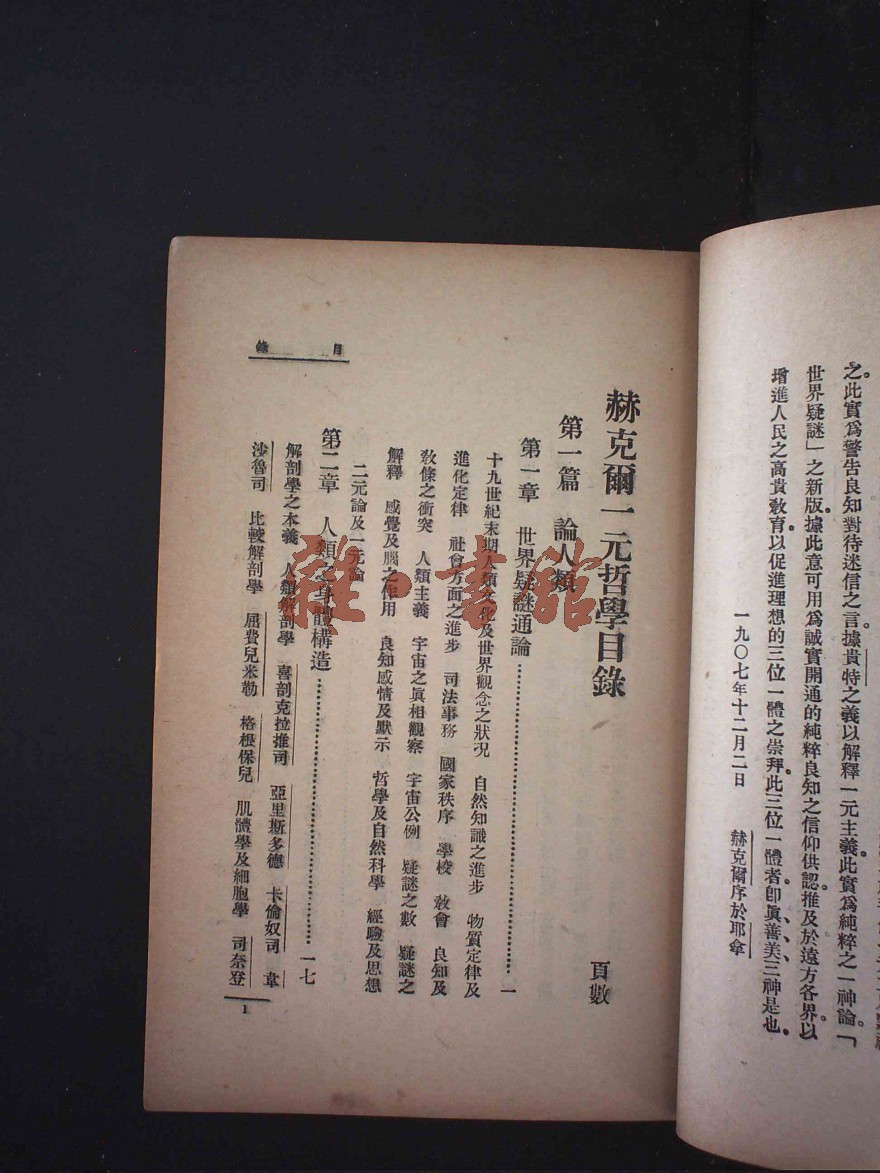 之。此實爲警告良知對待迷信之言據貴特之義以解釋一元主義此實爲純粹之一神論。「
世界疑謎」之新版據此意可用爲誠實開通的純粹良知之信仰供認推及於遠方各界以
增進人民之高貴敎育以促進理想的三位一體之崇拜。此三位一體者卽眞、善、美、三神是也。
一九〇七年十二月二日　赫克爾序於耶拿
目錄
赫克爾一元哲學目錄
頁數
第一篇　論人類
第一章　世界疑謎通論……一
十九世紀末期人類文化及世界觀念之狀況　自然知識之進步　物質定律及
進化定律　社會方面之進步　司法事務　國家秩序　學校　敎會　良知及
敎條之衝突　人類主義　宇宙之眞相觀察　宇宙公例　疑謎之數　疑謎之
解釋　感覺及腦之作用　良知感情及默示　哲學及自然科學　經驗及思想
二元論及一元論
第二章　人類之身體構造……一七
解剖學之本義　人類解剖學　喜剖克拉推司　亞里斯多德　卡倫奴司　韋
沙魯司　比較解剖學　屈費兒米勒　格根保兒　肌體學及細胞學　司奈登
1
雜·書館